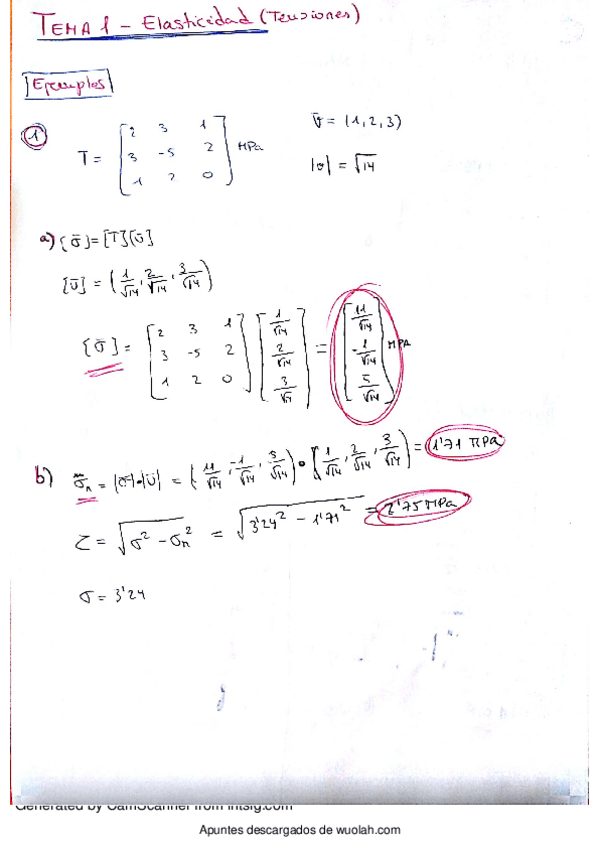 TEMA 1 - Elasticidad (Tensiones)
Ejemplos
① T = [2 3 1; 3 -5 2; 1 2 0] MPa  v̄ = (1,2,3)
|v| = √14
a) [σ̄] = [T][ū]
[ū] = (1/√14, 2/√14, 3/√14)
[σ̄] = [2 3 1; 3 -5 2; 1 2 0] [1/√14; 2/√14; 3/√14] = [11/√14; -1/√14; 5/√14] MPA
b) σ̄n = |σ̄|•|ū| = (11/√14, -1/√14, 5/√14) • (1/√14, 2/√14, 3/√14) = 1'71 MPa
τ = √(σ² - σn²) = √(3'24² - 1'71²) = 2'75 MPa
σ = 3'24
Generated by CamScanner from intsig.com
Apuntes descargados de wuolah.com